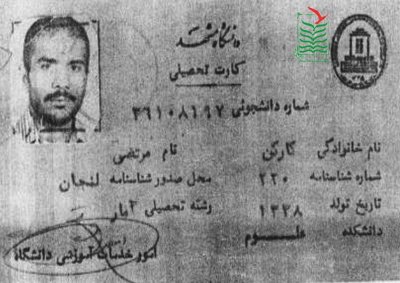 دانشگاه مشهد
کارت تحصیلی
شماره دانشجوئی ۳۶۱۰۸۱۹۷
نام خانوادگی کارکن نام مرتضی
شماره شناسنامه ۲۲۰ محل صدور شناسنامه لنجان
تاریخ تولد ۱۳۳۸ رشته تحصیلی آمار
دانشکده علــوم
امور خدمات آموزشی دانشگاه